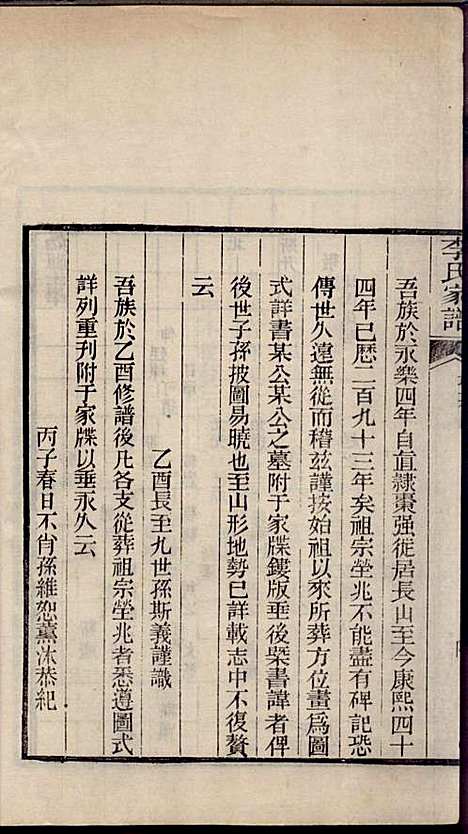 李氏家譜
吾族於永樂四年自直隸棗强徙居長山至今康熙四十
四年已歷二百九十三年矣祖宗塋兆不能盡有碑記恐
傳世久遠無從而稽兹謹按始祖以來所葬方位畫爲圖
式詳書某公某公之墓附于家牒鏤版垂後槩書諱者俾
後世子孫披圖易曉也至山形地勢已詳載志中不復贅
云
乙酉長至九世孫斯義謹識
吾族於乙酉修譜後凡各支從葬祖宗塋兆者悉遵圖式
詳列重刊附于家牒以垂永久云
丙子春日不肖孫維恕薰沐恭紀